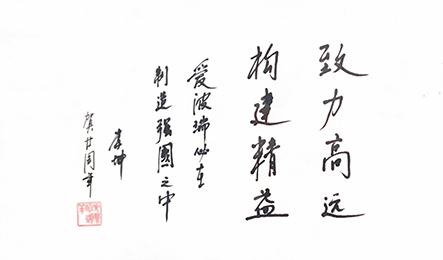 致力高远
构建精益
爱波瑞必在
制造强国之中
李坤
贺廿周年